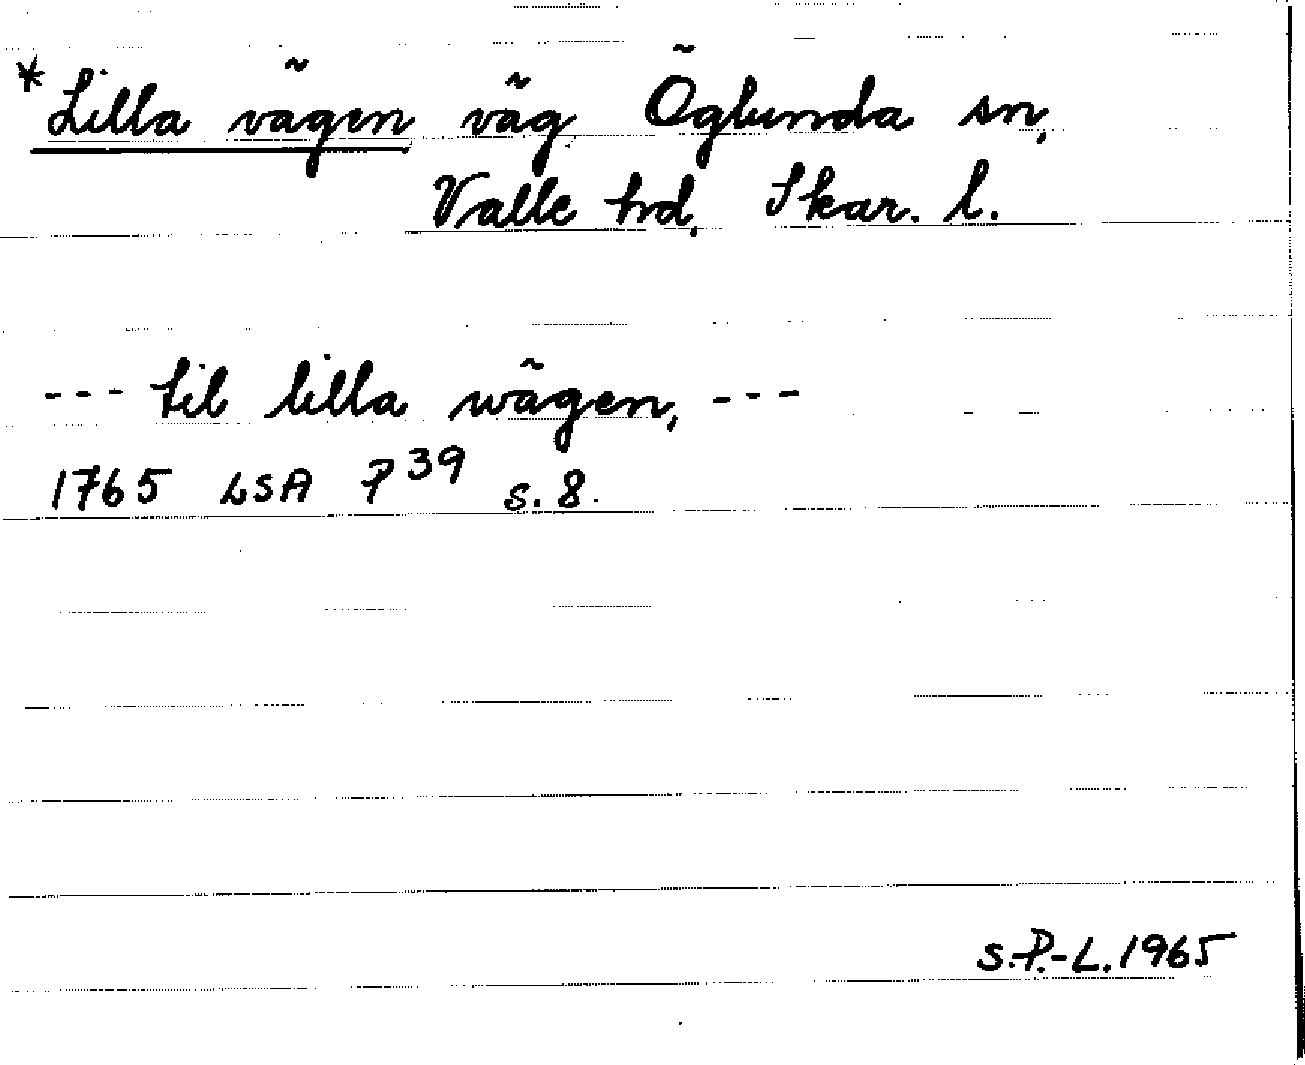 *Lilla vägen väg Öglunda sn,
Valle hd, Skar. l.
--- til lilla wägen, ---
1765 LSA P 39 s. 8.
S.P.-L. 1965